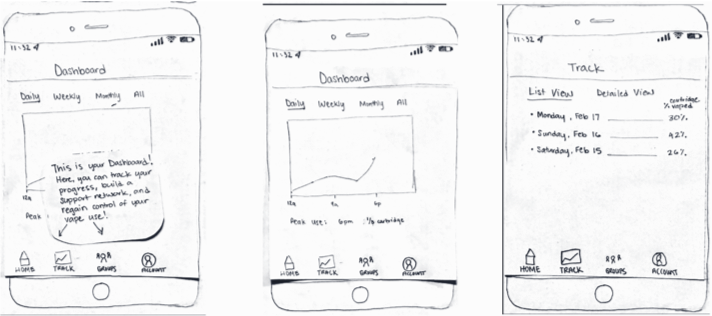 11:52
Dashboard
Daily Weekly Monthly All
This is your Dashboard!
Here, you can track your
progress, build a
support network, and
regain control of your
vape use!
12a
Peak
HOME TRACK GROUPS ACCOUNT
11:52
Dashboard
Daily Weekly Monthly All
12a 9a 6p
Peak use: 6pm % cartridge
HOME TRACK GROUPS ACCOUNT
11:52
Track
List View Detailed View
% cartridge
vaped
• Monday, Feb 17 30%
• Sunday, Feb 16 42%
• Saturday, Feb 15 26%
HOME TRACK GROUPS ACCOUNT